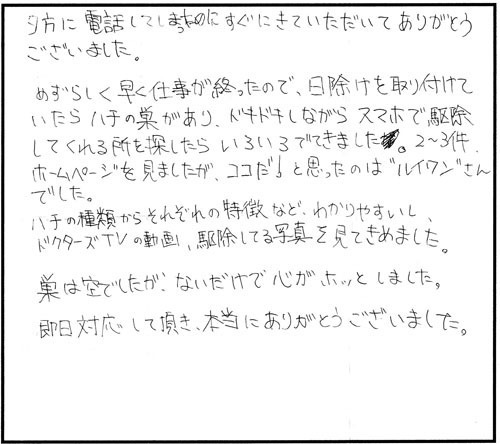 夕方に電話してしまったのにすぐにきていただいてありがとう
ございました。
めずらしく早く仕事が終ったので、日除けを取り付けて
いたらハチの巣があり、ドキドキしながらスマホで駆除
してくれる所を探したらいろいろでてきました。2~3件
ホームページを見ましたが、ココだ!と思ったのは"ルイワン"さん
でした。
ハチの種類からそれぞれの特徴など、わかりやすいし、
ドクターズTVの動画、駆除してる写真を見てきめました。
巣は空でしたが、ないだけで心がホッとしました。
即日対応して頂き、本当にありがとうございました。